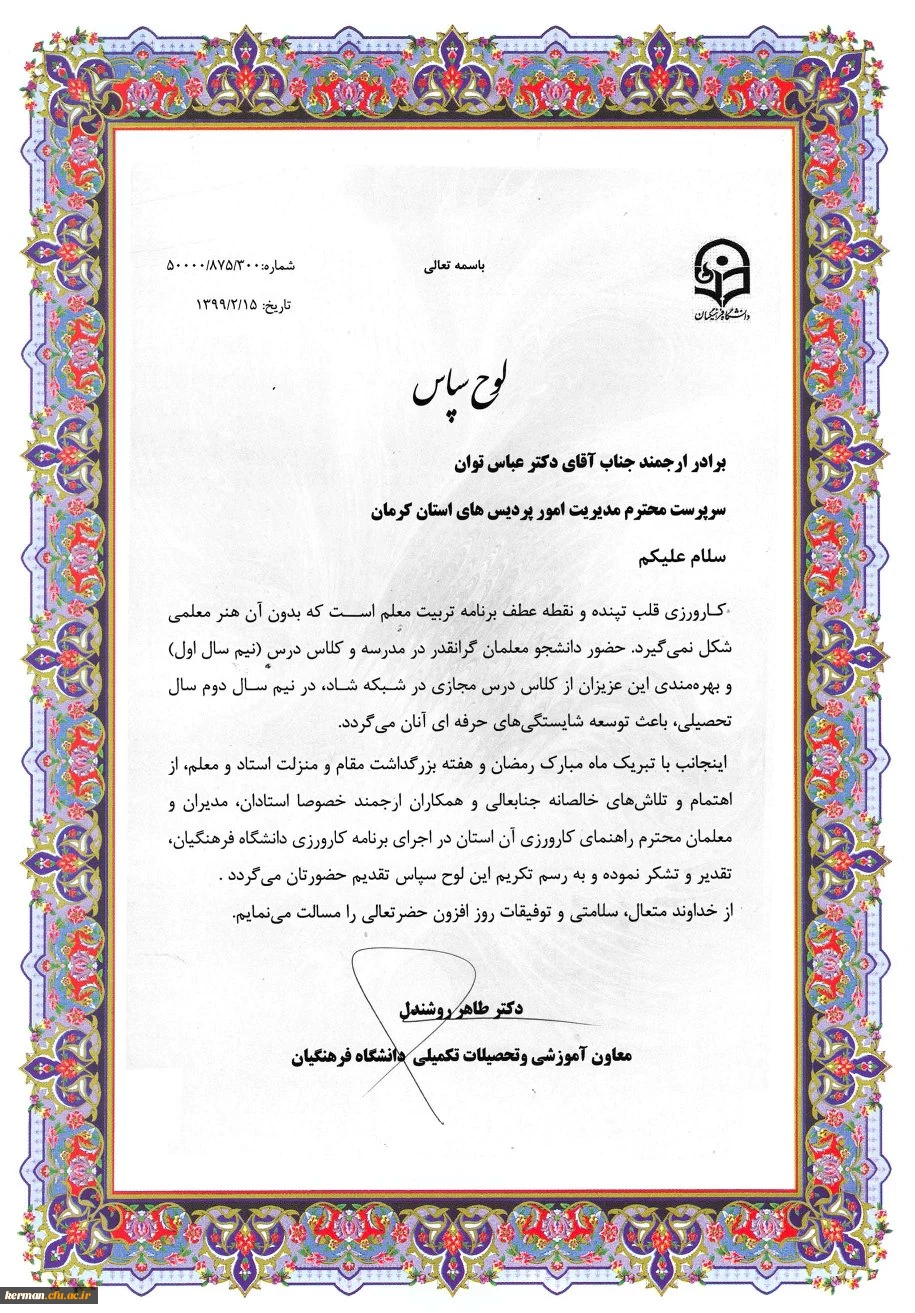 باسمه تعالی
شماره:۵۰۰۰۰/۸۷۵/۳۰۰
تاریخ: ۱۳۹۹/۲/۱۵
دانشگاه فرهنگیان
لوح سپاس
برادر ارجمند جناب آقای دکتر عباس توان
سرپرست محترم مدیریت امور پردیس های استان کرمان
سلام علیکم
کارورزی قلب تپنده و نقطه عطف برنامه تربیت معلم است که بدون آن هنر معلمی
شکل نمی‌گیرد. حضور دانشجو معلمان گرانقدر در مدرسه و کلاس درس (نیم سال اول)
و بهره‌مندی این عزیزان از کلاس درس مجازی در شبکه شاد، در نیم سال دوم سال
تحصیلی، باعث توسعه شایستگی‌های حرفه ای آنان می‌گردد.
اینجانب با تبریک ماه مبارک رمضان و هفته بزرگداشت مقام و منزلت استاد و معلم، از
اهتمام و تلاش‌های خالصانه جنابعالی و همکاران ارجمند خصوصا استادان، مدیران و
معلمان محترم راهنمای کارورزی آن استان در اجرای برنامه کارورزی دانشگاه فرهنگیان،
تقدیر و تشکر نموده و به رسم تکریم این لوح سپاس تقدیم حضورتان می‌گردد .
از خداوند متعال، سلامتی و توفیقات روز افزون حضرتعالی را مسالت می‌نمایم.
دکتر طاهر روشندل
معاون آموزشی وتحصیلات تکمیلی دانشگاه فرهنگیان
kerman.cfu.ac.ir